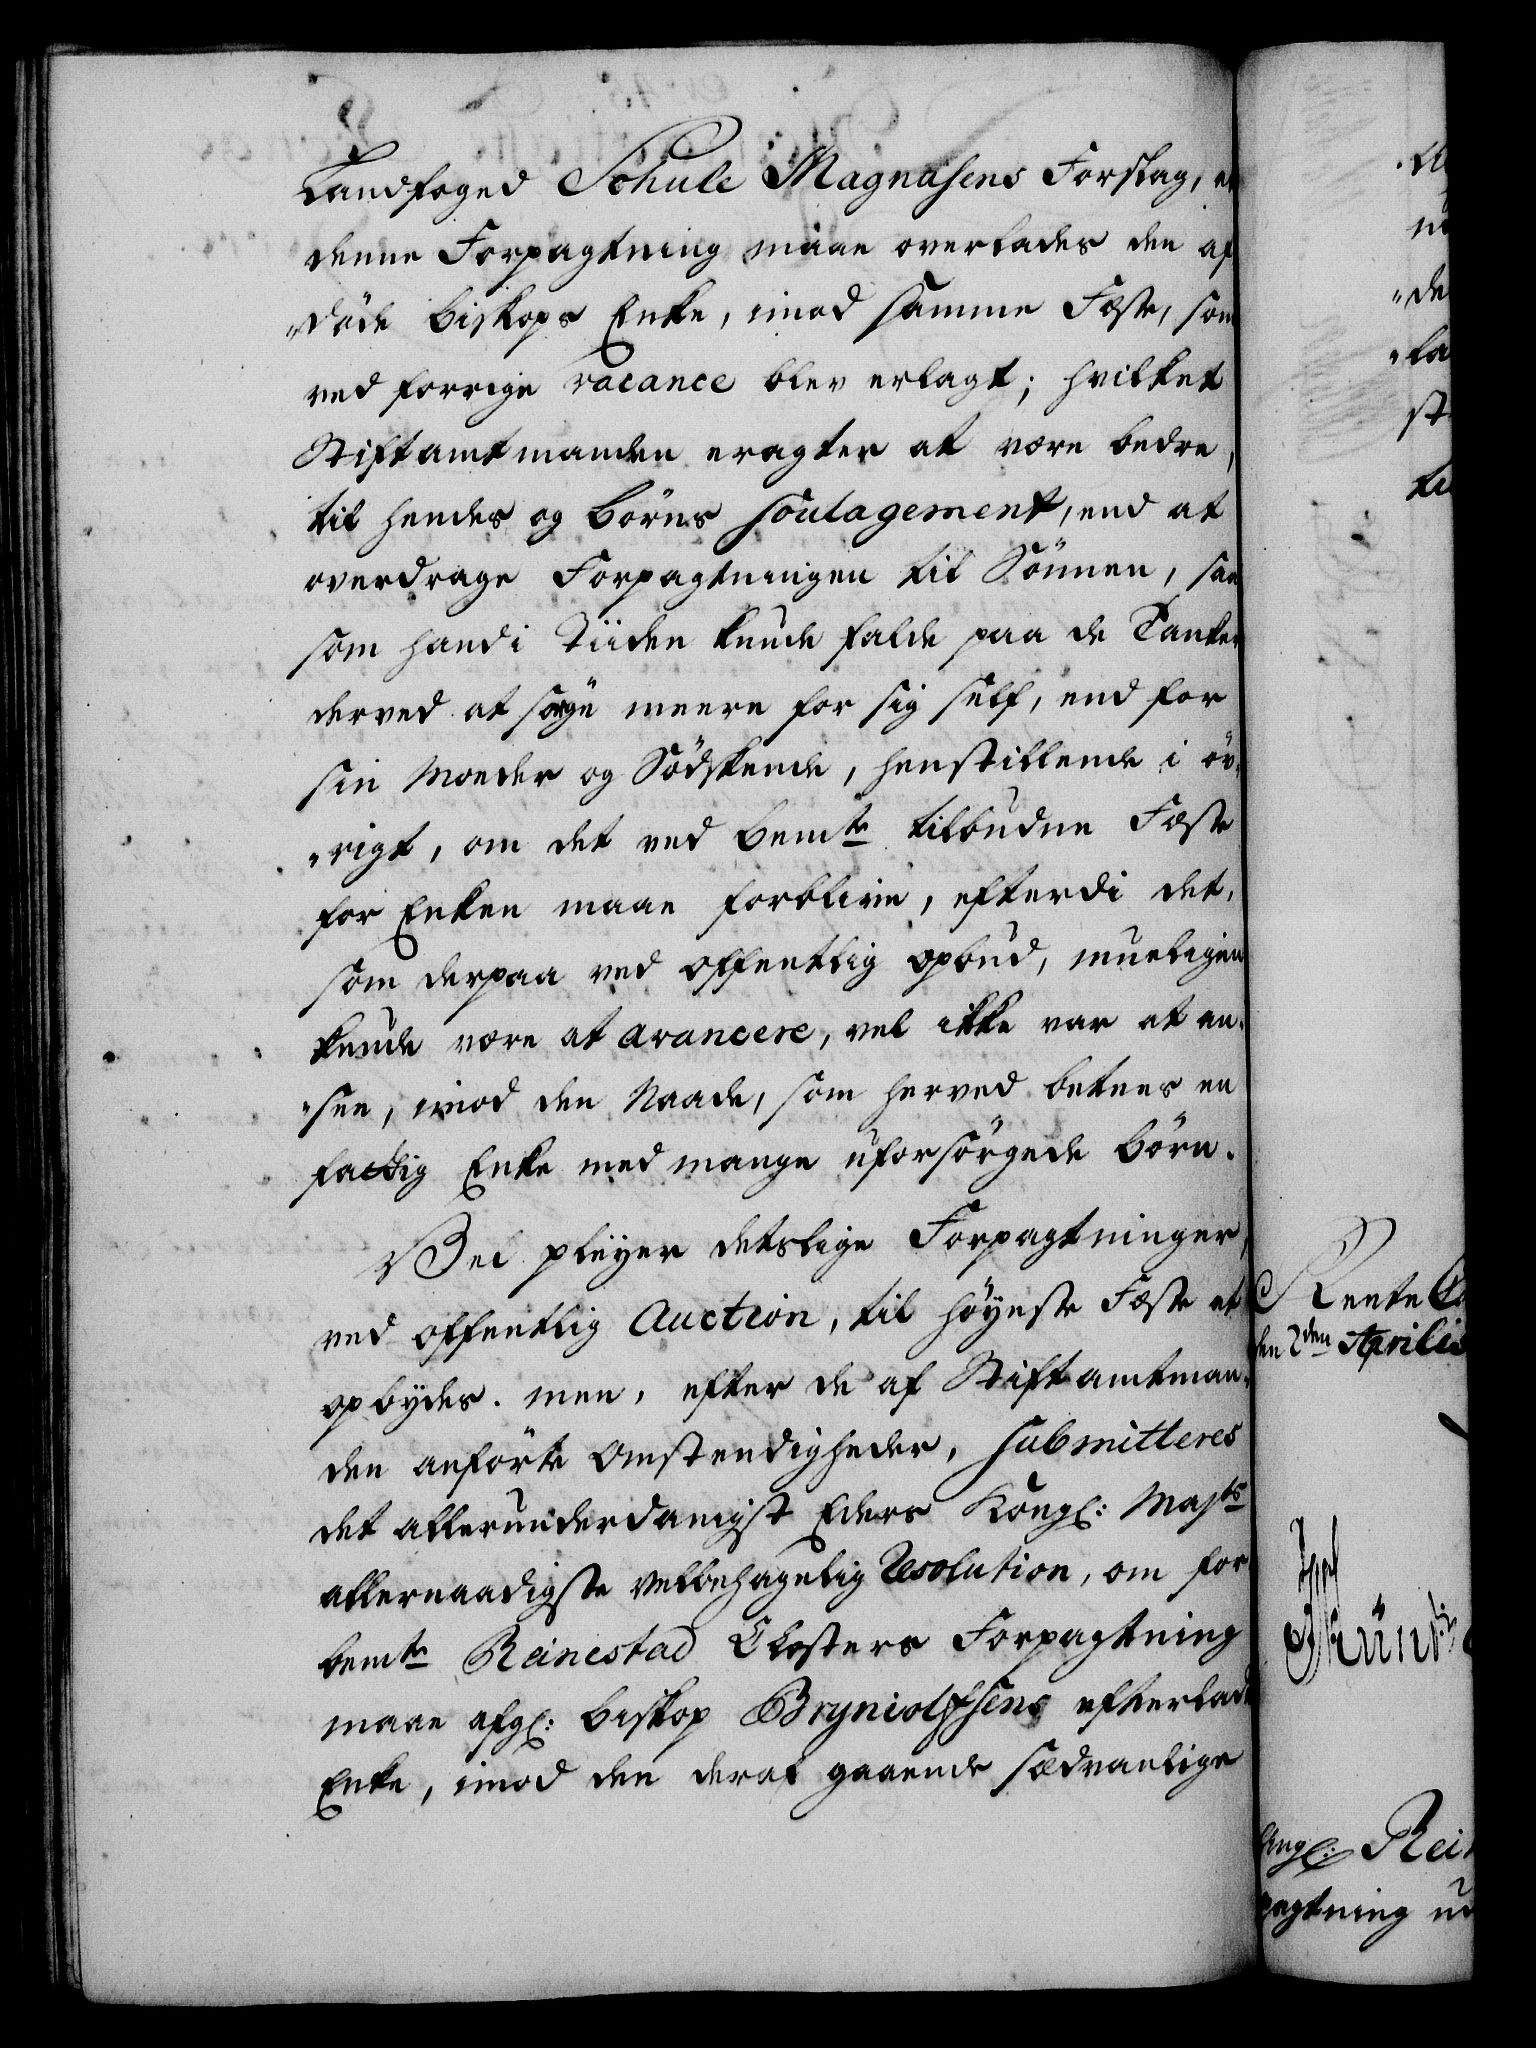 Landfoged Schule Magnusens Forslag, at
denne Forpagtning maae overlades den af
„døde Biskops Enke, imod samme Fæste, som
ved forrige vacance blev erlagt; hvilket
Stiftamtmanden eragter at være bedre,
til hendes og Børns Soulagement, end at
overdrage Forpagtningen til Sönnen, saa
som hand i Tiiden kunde falde paa de Tanker
derved at sørge meere for sig self, end for
sin Moeder og Södskende, henstillende i öv„
„rigt, om det ved bemte tilbudne Fæste
for Enken maae forblive, efterdi det,
som derpaa ved offentlig opbud, mueligen
kunde være at avancere, vel ikke var at an„
„see, imod den Naade, som herved betees en
fattig Enke med mange uforsörgede Börn.
Vel pleyer deslige Forpagtninger,
ved offentlig Auction, til höyeste Fæste at
opbydes. men, efter de af Stiftamtman„
den anförte Omstendigheder, submitteres
det allerunderdanigst Eders Kongl: Majts
allernaadigste velbehagelig Resolution, om for
bemte Reinestad Closters Forpagtning
maae afgl: Biskop Bryniolfsens efterladte
Enke, imod den deraf gaaende sædvanlige
Rente Ca
den 2den Aprilis
Kongl: Rein
pagtning ud